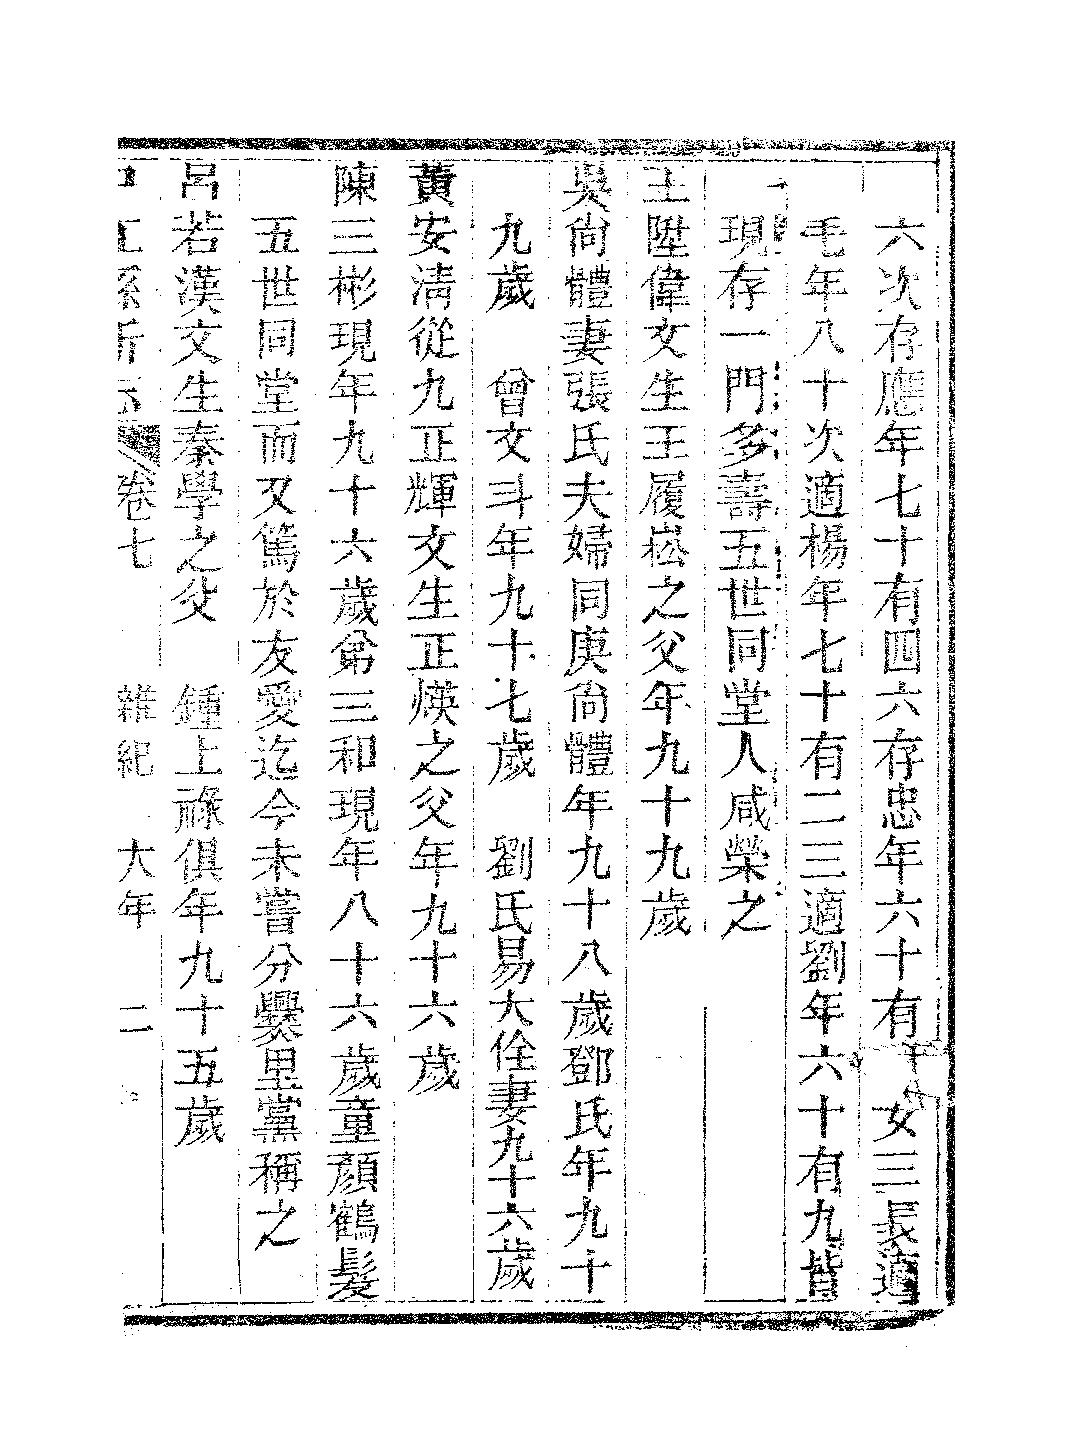 六次存應年七十有四六存忠年六十有 女三長適
毛年八十次適楊年七十有二三適劉年六十有九皆
現存一門多壽五世同堂人咸榮之
王陞偉文生王履崧之父年九十九歲
吳尚體妻張氏夫婦同庚尚體年九十八歲鄧氏年九十
九歲 曾文斗年九十七歲 劉氏易大佺妻九十六歲
黃安清從九正輝文生正煐之父年九十六歲
陳三彬現年九十六歲弟三和現年八十六歲童顏鶴髮
五世同堂而又篤於友愛迄今未嘗分爨里黨稱之
呂若漢文生秦學之父 鍾上祿俱年九十五歲
卷七 雜紀 大年 二